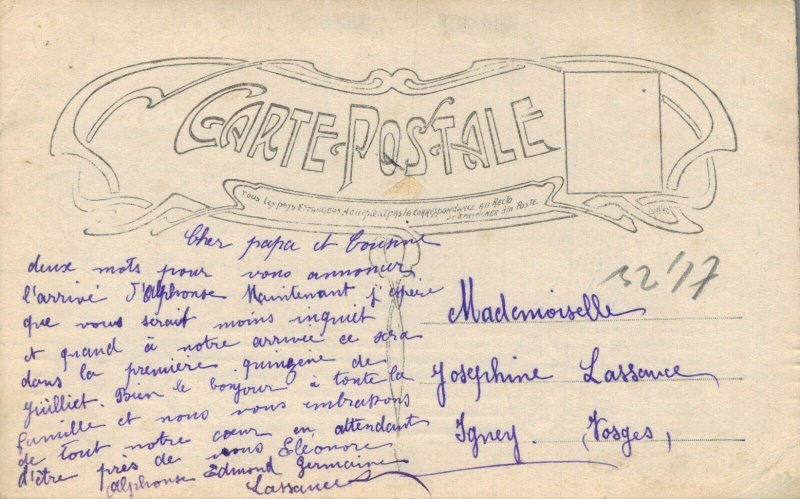 CARTE POSTALE
TOUS LES PAYS ETRANGERS N'acceptent pas la CORRESPONDANCE AU RECTO
SE RENSEIGNER à la POSTE
Cher papa et Cousine
deux mots pour vous annoncer
l'arrivé d'Alphonse Maintenant j'espère
que vous serait moins inquiet
et quand à notre arrivée ce sera
dans la première quinzène de
juilliet. Bien le bonjour à toute la
famille et nous vous embrasons
de tout notre cœur en attendant
d'être près de vous Eléonore
Alphonse Edmond Germaine
Lassance
52'17
Mademoiselle
Joséphine Lassance
Igney. (Vosges)